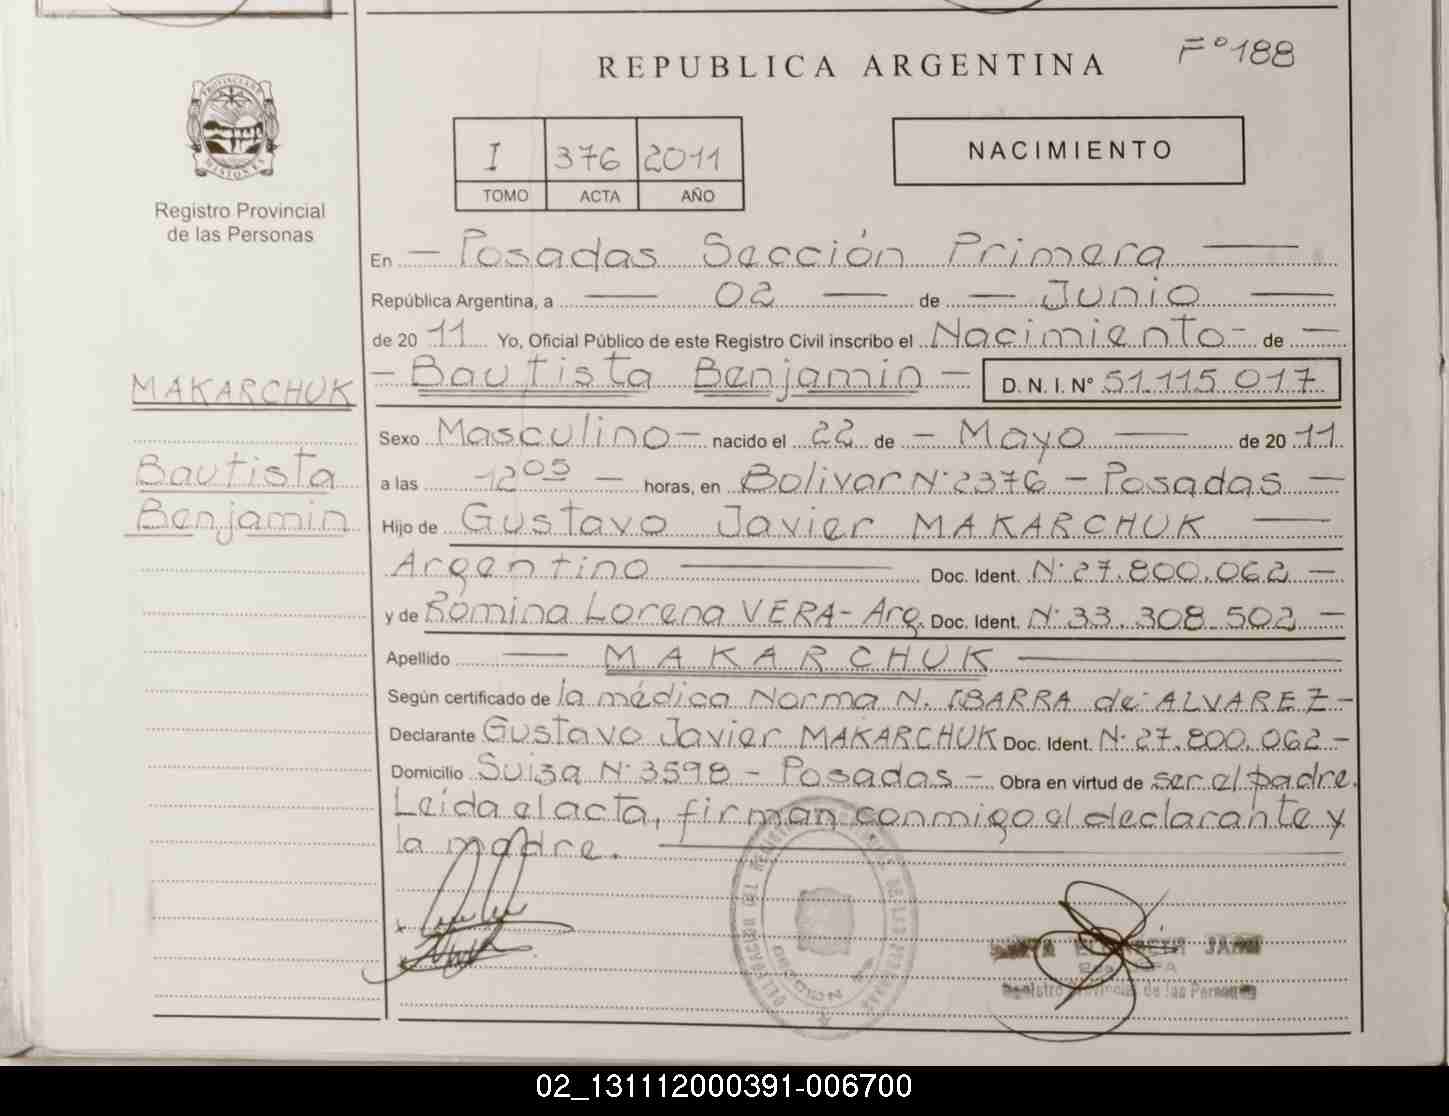 REPUBLICA ARGENTINA
Fº 188
PROVINCIA DE MISIONES
Registro Provincial
de las Personas
I 376 2011
TOMO ACTA AÑO
NACIMIENTO
En - Posadas Sección Primera -
República Argentina, a - 02 - de - Junio -
de 20 11 Yo, Oficial Público de este Registro Civil inscribo el Nacimiento - de -
- Bautista Benjamin - D. N. I. N° 51.115.017
MAKARCHUK
Bautista
Benjamin
Sexo Masculino - nacido el 22 de - Mayo - de 20 11
a las 12 05 - horas, en Bolivar N° 2376 - Posadas -
Hijo de Gustavo Javier MAKARCHUK -
Argentino - Doc. Ident. N° 27.800.062 -
y de Romina Lorena VERA - Arg. Doc. Ident. N° 33.308.502 -
Apellido - MAKARCHUK -
Según certificado de la médica Norma N. IBARRA de ALVAREZ -
Declarante Gustavo Javier MAKARCHUK Doc. Ident. N° 27.800.062 -
Domicilio Suiza N° 3598 - Posadas - Obra en virtud de ser el padre.
Leída el acta, firman conmigo el declarante y
la madre.
Registro Provincial de las Personas
02_131112000391-006700